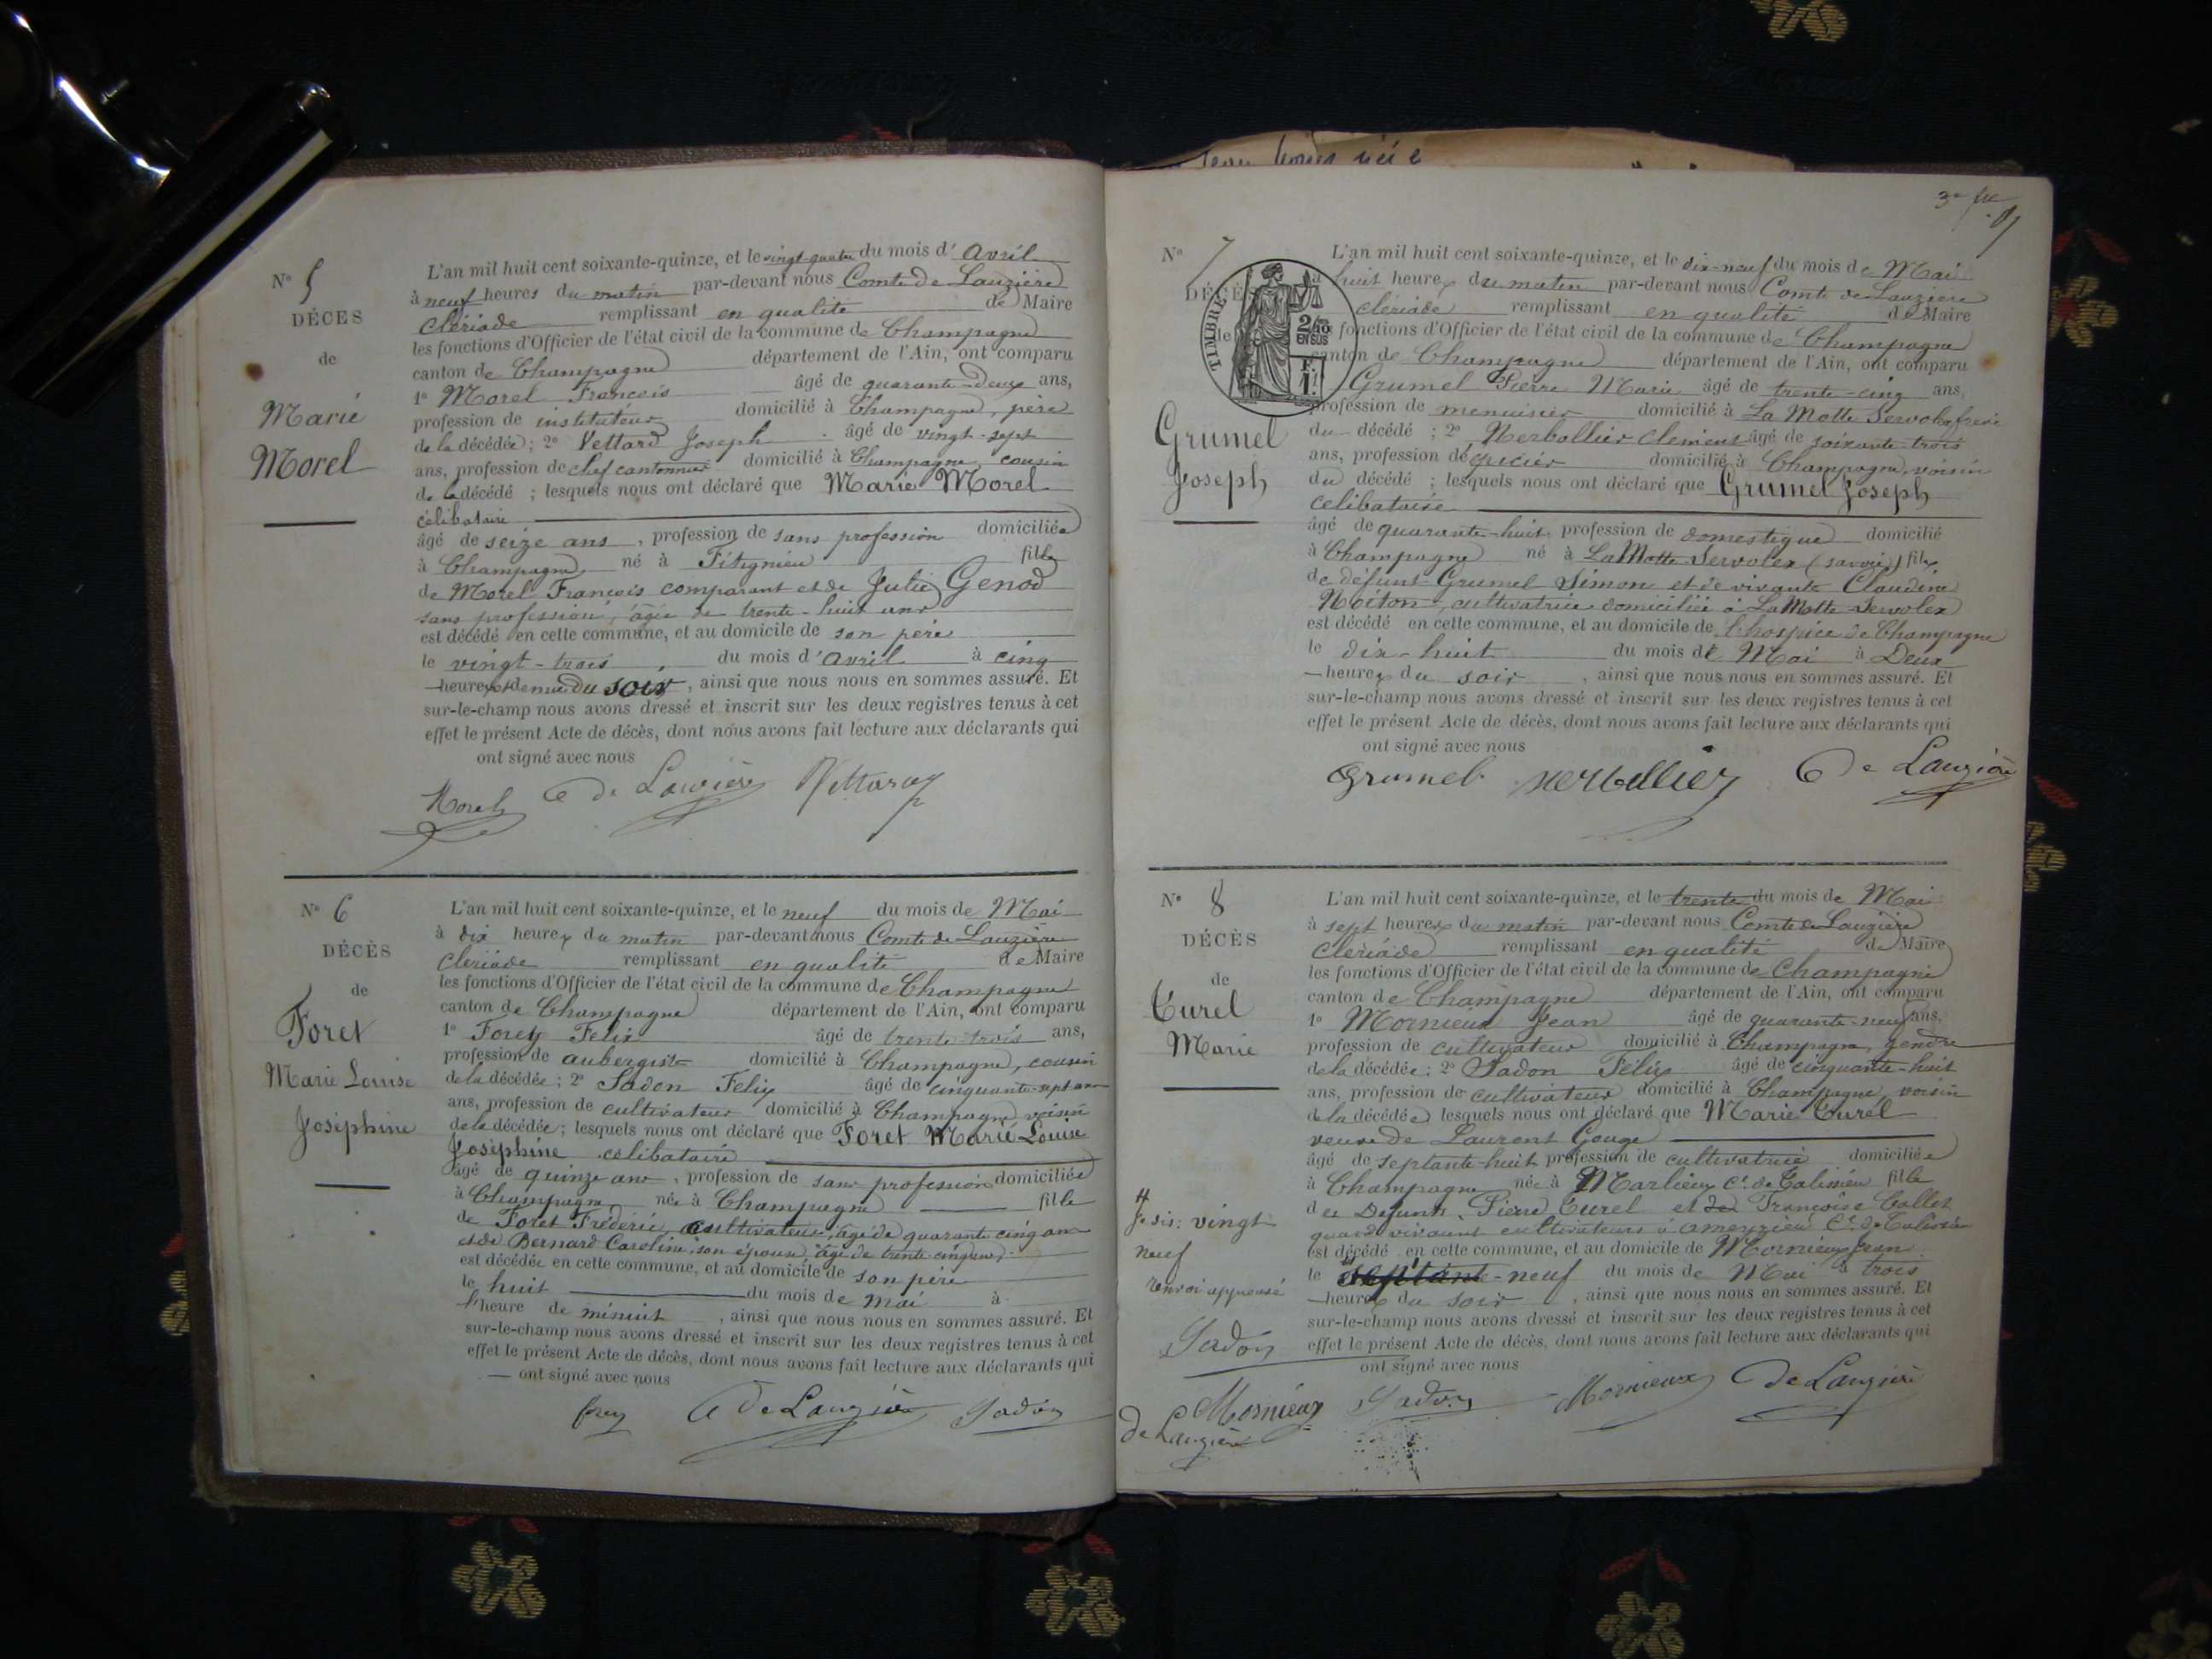 N° 5
DÉCES
de
Marie
Morel
L'an mil huit cent soixante-quinze, et le vingt-quatre du mois d' Avril
à neuf heures du matin par-devant nous Comte de Lauzière
Clériade remplissant en qualité de Maire
les fonctions d'Officier de l'état civil de la commune de Champagne
canton de Champagne département de l'Ain, ont comparu
1° Morel François âgé de quarante-deux ans,
profession de instituteur domicilié à Champagne, père
de la décédée; 2° Vettard Joseph âgé de vingt-sept
ans, profession de chef cantonnier domicilié à Champagne, cousin
de la décédé ; lesquels nous ont déclaré que Marie Morel
célibataire
âgé de seize ans, profession de sans profession domiciliée
à Champagne né à Fitignieu fille
de Morel François comparant et de Julie Genod
sans profession, âgée de trente-huit ans
est décédé en cette commune, et au domicile de son père
le vingt-trois du mois d'avril à cinq
heures et demie du soir, ainsi que nous nous en sommes assuré. Et
sur-le-champ nous avons dressé et inscrit sur les deux registres tenus à cet
effet le présent Acte de décès, dont nous avons fait lecture aux déclarants qui
ont signé avec nous
Morel C de Lauzière Vettard
N° 6
DÉCÈS
de
Foret
Marie Louise
Joséphine
L'an mil huit cent soixante-quinze, et le neuf du mois de Mai
à dix heures du matin par-devant nous Comte de Lauzière
Clériade remplissant en qualité de Maire
les fonctions d'Officier de l'état civil de la commune de Champagne
canton de Champagne département de l'Ain, ont comparu
1° Forey Felix âgé de trente-trois ans,
profession de aubergiste domicilié à Champagne, cousin
de la décédée; 2° Sadon Felix âgé de cinquante-sept ans
ans, profession de cultivateur domicilié à Champagne voisin
de la décédée; lesquels nous ont déclaré que Foret Marie Louise
Joséphine célibataire
âgé de quinze ans, profession de sans profession domiciliée
à Champagne née à Champagne fille
de Foret Fréderic, cultivateur, âgé de quarante cinq ans
et de Bernard Caroline, son épouse, âgée de trente-cinq ans,
est décédée en cette commune, et au domicile de son père
le huit du mois de mai à
l'heure de minuit, ainsi que nous nous en sommes assuré. Et
sur-le-champ nous avons dressé et inscrit sur les deux registres tenus à cet
effet le présent Acte de décès, dont nous avons fait lecture aux déclarants qui
ont signé avec nous
forey C de Lauzière Sadon
N° 7
DÉCÈS
de
Grumel
Joseph
TIMBRE
2/10mes EN SUS
1F
L'an mil huit cent soixante-quinze, et le dix-neuf du mois de Mai
à huit heures du matin par-devant nous Comte de Lauzière
Clériade remplissant en qualité de Maire
fonctions d'Officier de l'état civil de la commune de Champagne
canton de Champagne département de l'Ain, ont comparu
Grumel Pierre Marie âgé de trente-cinq ans,
profession de menuisier domicilié à La Motte Servolex frère
du décédé ; 2° Nerbollier Clement âgé de soixante-trois
ans, profession de épicier domicilié à Champagne, voisin
du décédé ; lesquels nous ont déclaré que Grumel Joseph
célibataire
âgé de quarante-huit profession de domestique domicilié
à Champagne né à La Motte-Servolex (Savoie) fils
de défunt Grumel Simon et de vivante Claudine
Noiton, cultivatrice domiciliée à La Motte-Servolex
est décédé en cette commune, et au domicile de l'hospice de Champagne
le dix-huit du mois de Mai à Deux
heures du soir, ainsi que nous nous en sommes assuré. Et
sur-le-champ nous avons dressé et inscrit sur les deux registres tenus à cet
effet le présent Acte de décès, dont nous avons fait lecture aux déclarants qui
ont signé avec nous
Grumel nerbollier C de Lauzière
N° 8
DÉCÈS
de
Curel
Marie
L'an mil huit cent soixante-quinze, et le trente du mois de Mai
à sept heures du matin par-devant nous Comte de Lauzière
Clériade remplissant en qualité de Maire
les fonctions d'Officier de l'état civil de la commune de Champagne
canton de Champagne département de l'Ain, ont comparu
1° Mornieux Jean âgé de quarante-neuf ans,
profession de cultivateur domicilié à Champagne, gendre
de la décédée; 2° Sadon Félix âgé de cinquante-huit
ans, profession de cultivateur domicilié à Champagne voisin
de la décédée lesquels nous ont déclaré que Marie Curel
veuve de Laurent Gouge
âgé de septante-huit profession de cultivatrice domiciliée
à Champagne née à Marlieux Ce de Talissieu fille
des Defunts Pierre Curel et de Françoise Collet
quand vivaient cultivateurs à Ameyzieu Ce de Talissieu
est décédé en cette commune, et au domicile de Mornieux Jean
le septante-neuf du mois de Mai à trois
heures du soir, ainsi que nous nous en sommes assuré. Et
sur-le-champ nous avons dressé et inscrit sur les deux registres tenus à cet
effet le présent Acte de décès, dont nous avons fait lecture aux déclarants qui
ont signé avec nous
Je dis: vingt
neuf
renvoi approuvé
Sadon
Mornieux Sadon Mornieux C de Lauzière
de Lauzière